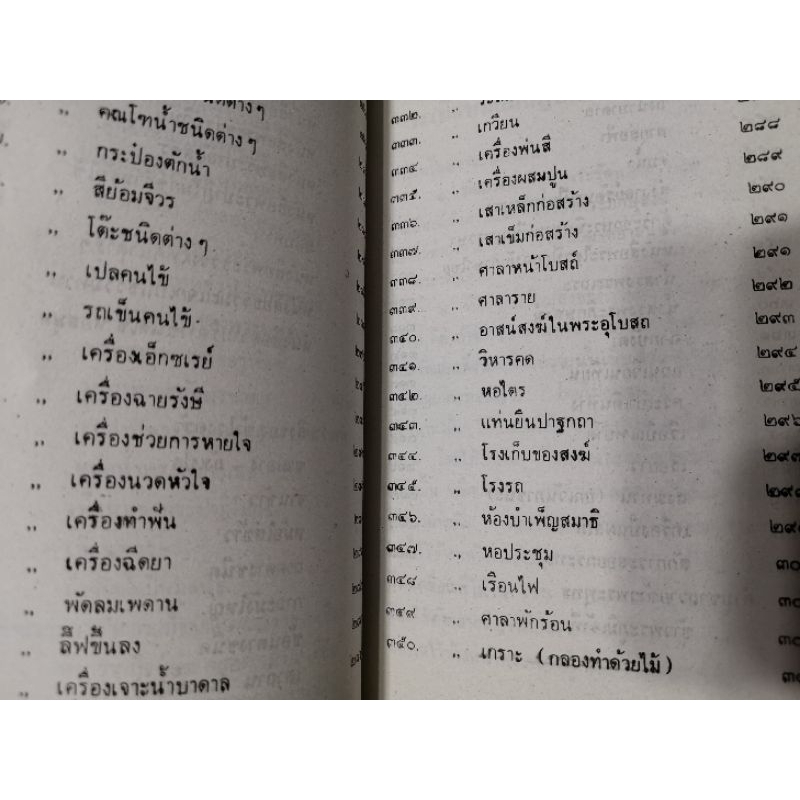 " คณโฑน้ำชนิดต่างๆ
" กระป๋องตักน้ำ
" สีย้อมจีวร
" โต๊ะชนิดต่างๆ
" เปลคนไข้
" รถเข็นคนไข้
" เครื่องเอ็กซเรย์
" เครื่องฉายรังษี
" เครื่องช่วยการหายใจ
" เครื่องนวดหัวใจ
" เครื่องทำฟัน
" เครื่องฉีดยา
" พัดลมเพดาน
" ลิ๊ฟขึ้นลง
" เครื่องเจาะน้ำบาดาล
๓๓๒.
๓๓๓. " เกวียน ๒๘๘
๓๓๔ " เครื่องพ่นสี ๒๘๙
๓๓๕. " เครื่องผสมปูน ๒๙๐
๓๓๖. " เสาเหล็กก่อสร้าง ๒๙๑
๓๓๗. " เสาเข็มก่อสร้าง ๒๙๑
๓๓๘. " ศาลาหน้าโบสถ์ ๒๙๒
๓๓๙. " ศาลาราย ๒๙๓
๓๔๐. " อาสน์สงฆ์ในพระอุโบสถ ๒๙๔
๓๔๑. " วิหารคด ๒๙๕
๓๔๒. " หอไตร ๒๙๖
๓๔๓. " แท่นยืนปาฐกถา ๒๙๗
๓๔๔. " โรงเก็บของสงฆ์
๓๔๕. " โรงรถ
๓๔๖. " ห้องบำเพ็ญสมาธิ
๓๔๗. " หอประชุม
๓๔๘ " เรือนไฟ
๓๔๙ " ศาลาพักร้อน
๓๕๐. " เกราะ (กลองทำด้วยไม้)